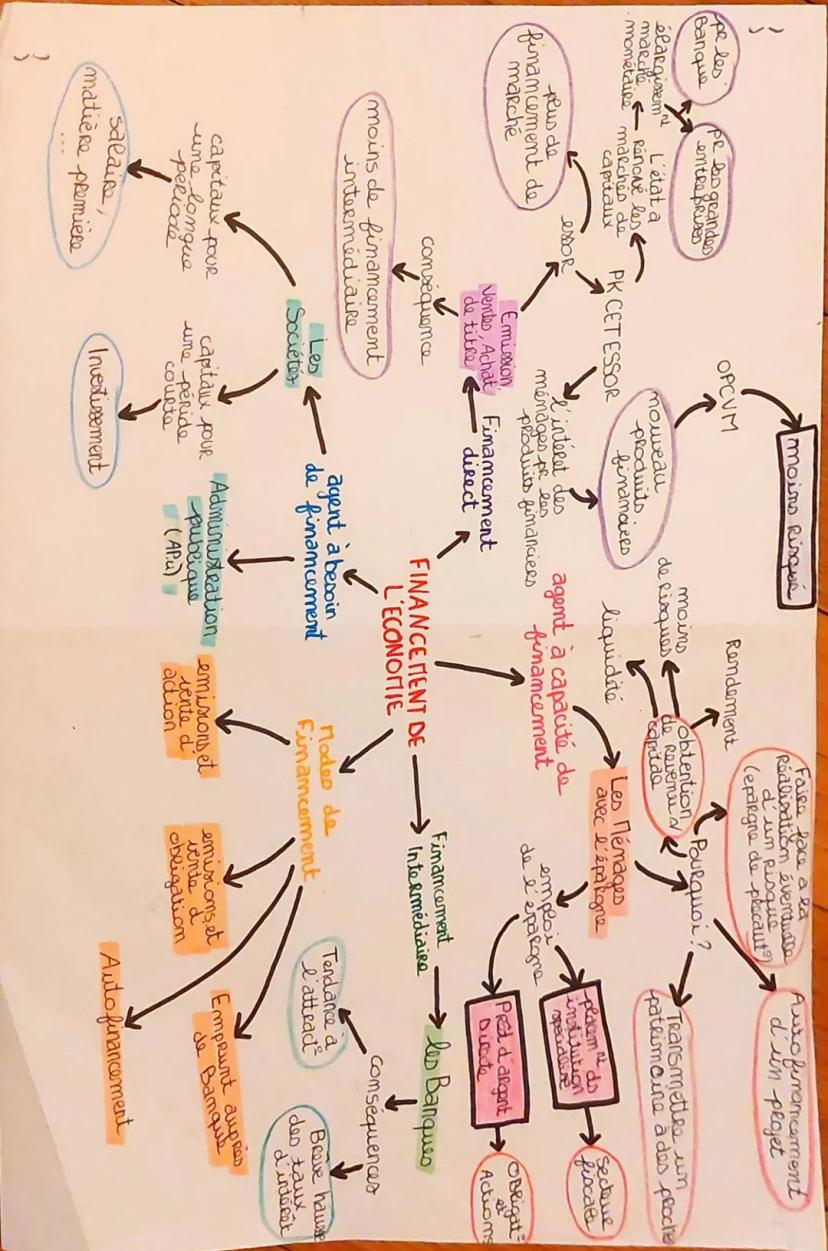 FINANCEMENT DE
L'ECONOMIE
Financement
direct
Emission,
Ventes, Achat
de titre
conséquence
moins de financement
intermédiaire
essor
plus de
financement de
marché
PK CET ESSOR
L'état a
rénové les
marchés de
capitaux
élargissemnt
marché
monétaire
pr les
Banque
pr les grandes
entreprises
l'intérêt des
ménages pr les
produits financiers
nouveau
produits
financiers
OPCVM
moins Risqué
agent à capacité de
financement
Les Ménages
avec l'épargne
Pourquoi ?
Obtention
de Revenus/
capital
Rendement
moins
de risques
liquidité
Faire face a la
Réalisation éventuelle
d'un Risque
Autofinancement
d'un projet
Transmettre un
patrimoine à des proche
emploi
de l'épargne
placemnt ds
institution
spécialisé
Prêt d'argent
Directe
Obligat°
et
Actions
Financement
Intermédiaire
les Banques
conséquences
Tendance à
l'attract°
Brève hausse
des taux
d'intérêt
Modes de
Financement
emissions et
vente d'
action
emissions, et
vente d'
obligation
Emprunt auprès
de Banque
Autofinancement
agent à besoin
de financement
Administration
publique
(APu)
Les
Sociétés
capitaux pour
une péride
courte
Investissement
capitaux pour
une longue
période
salaire,
matière première
...